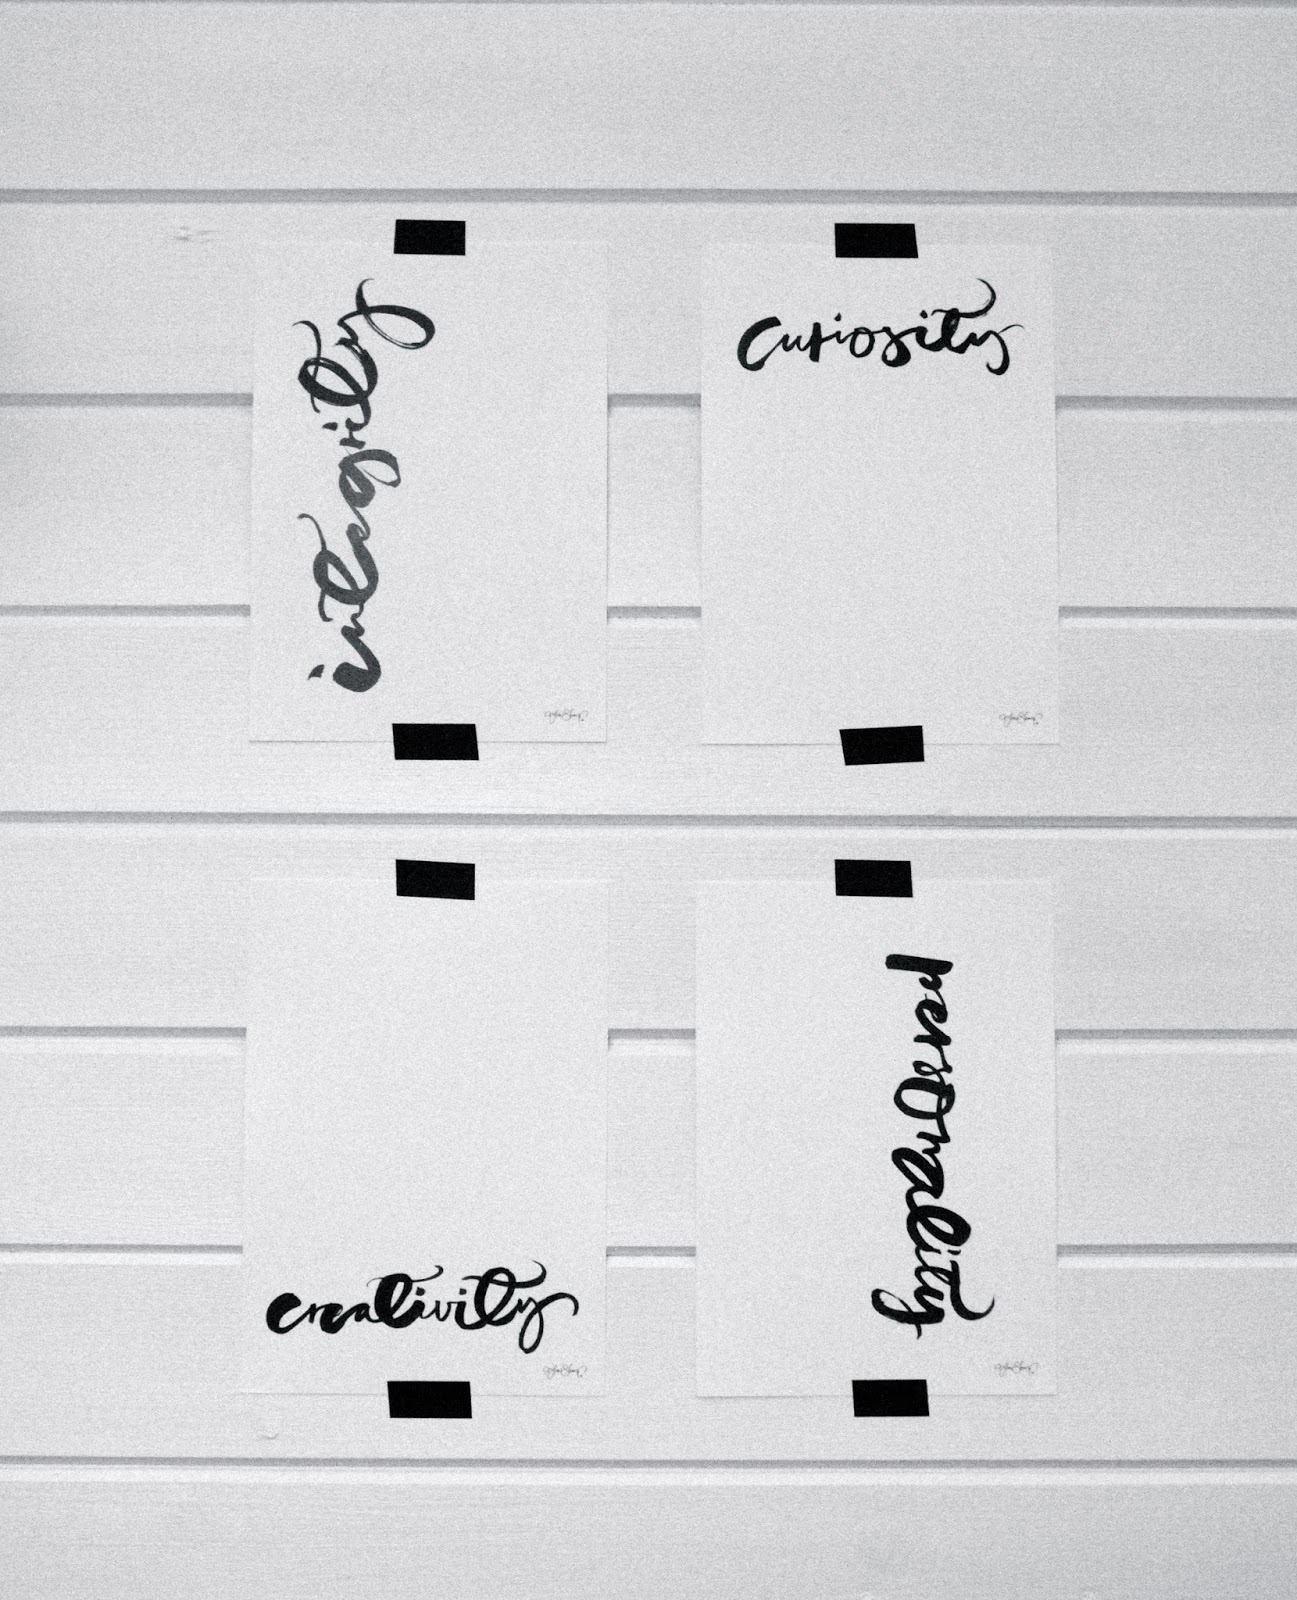 integrity
curiosity
creativity
personality